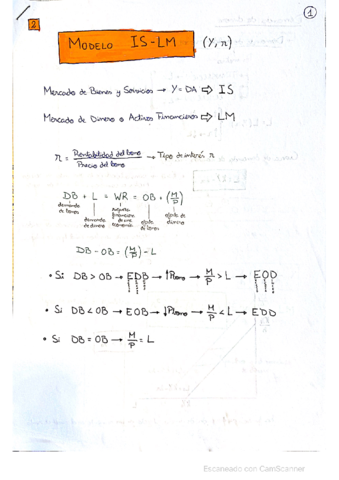 1
2
MODELO IS-LM (Y, r)
Mercado de Bienes y Servicios → Y = DA ⇒ IS
Mercado de Dinero o Activos Financieros ⇒ LM
r = Rentabilidad del bono / Precio del bono → Tipo de interés r
DB + L = WR = OB + (M/P)
demanda de bonos
demanda de dinero
riqueza financiera de una economía
oferta de bonos
oferta de dinero
DB - OB = (M/P) - L
• Si DB > OB → EDB → ↑Pbono → M/P > L → EOD
• Si DB < OB → EOB → ↓Pbono → M/P < L → EDD
• Si DB = OB → M/P = L
Escaneado con CamScanner